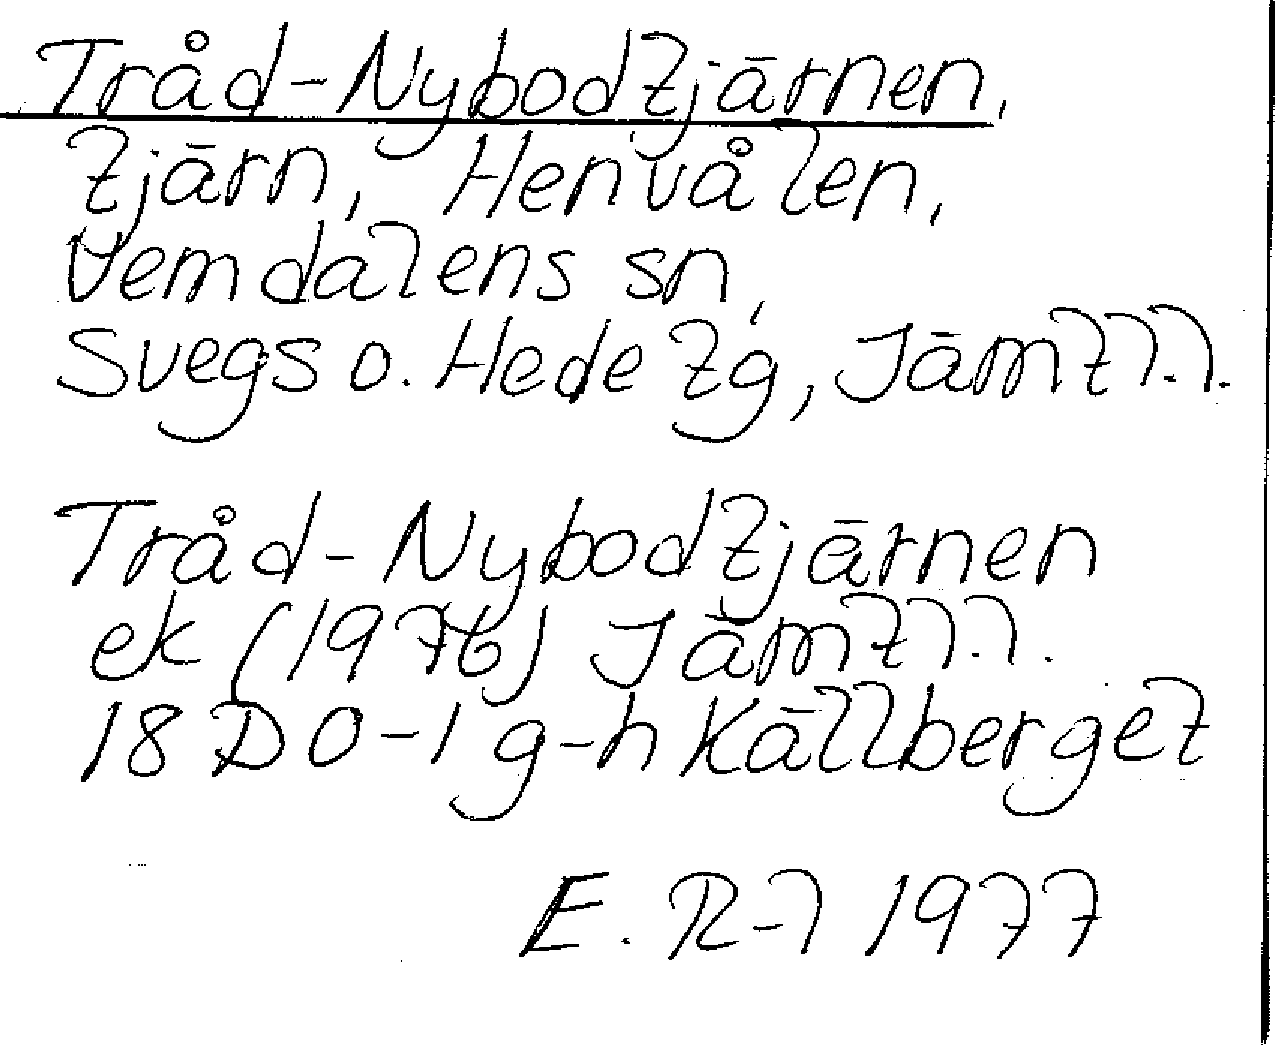 Tråd-Nybodtjärnen,
tjärn, Henvålen,
Vemdalens sn,
Svegs o. Hede tg, Jämtl.l.
Tråd-Nybodtjärnen
ek (1976) Jämtl.l.
18 D 0-1 g-h Källberget
E. R-l 1977